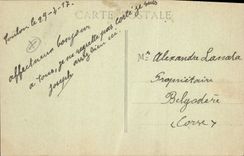 CARTE POSTALE
Toulon le 29-4-17.
affectueux bonjour
à tous, je ne regrette pas car je suis
très bien ici.
Joseph
Mr Alexandre Lanata
Propriétaire
Belgodère
(Corse)